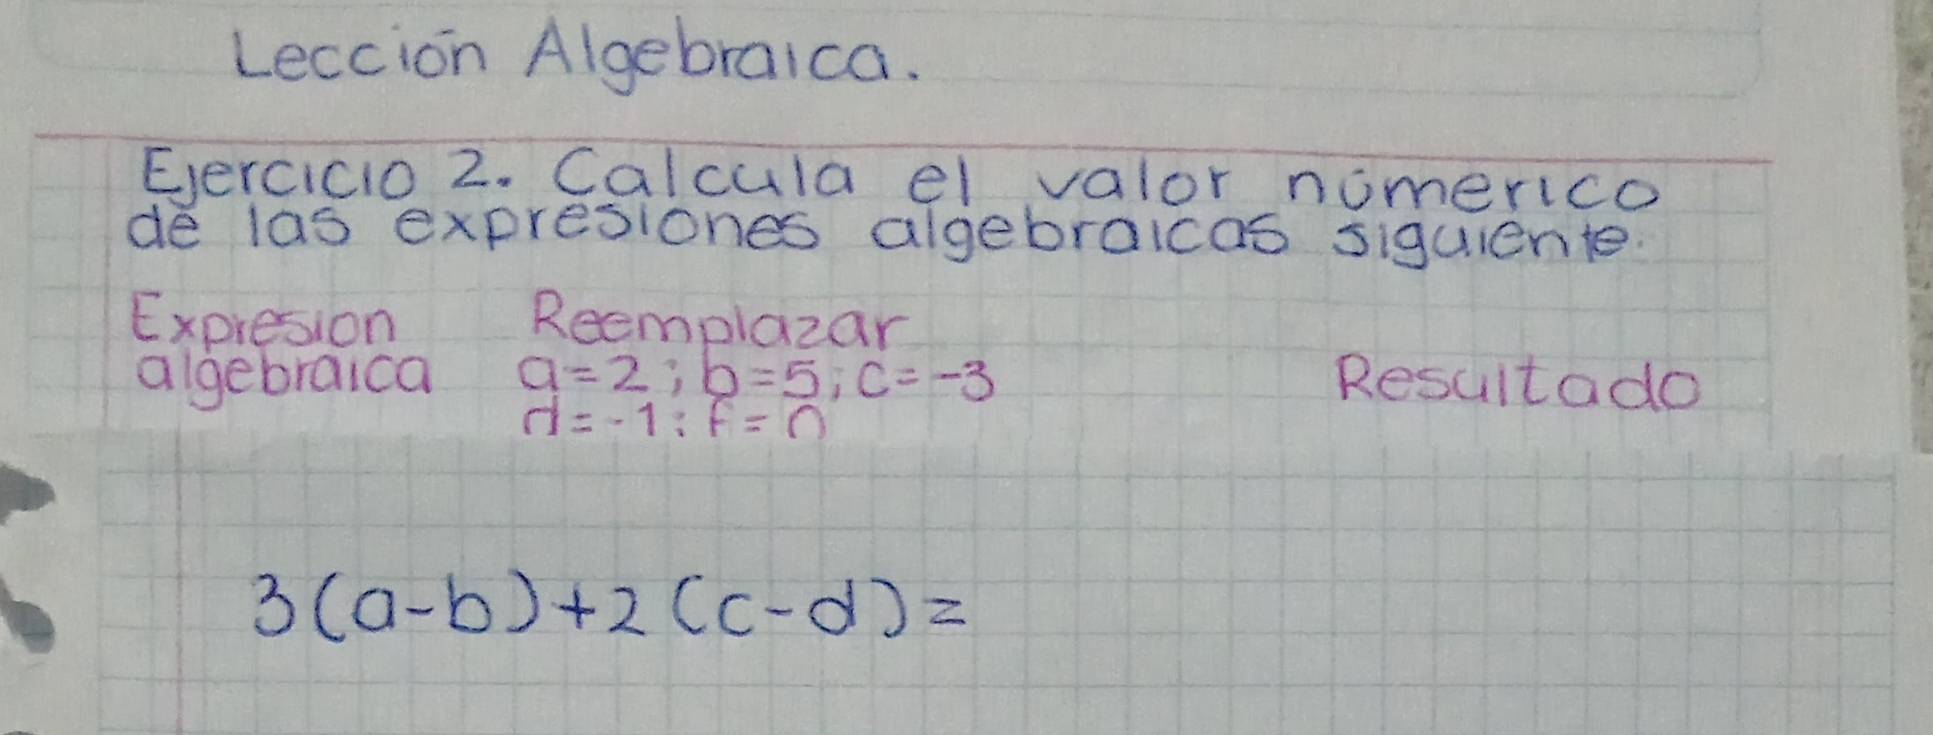 Lección Algebraica.
Ejercicio 2. Calcula el valor númerico
de las expresiones algebraicas siguiente.
Expresion Reemplazar
algebraica a=2; b=5; c=-3 Resultado
d=-1; f=0
3(a-b)+2(c-d)=